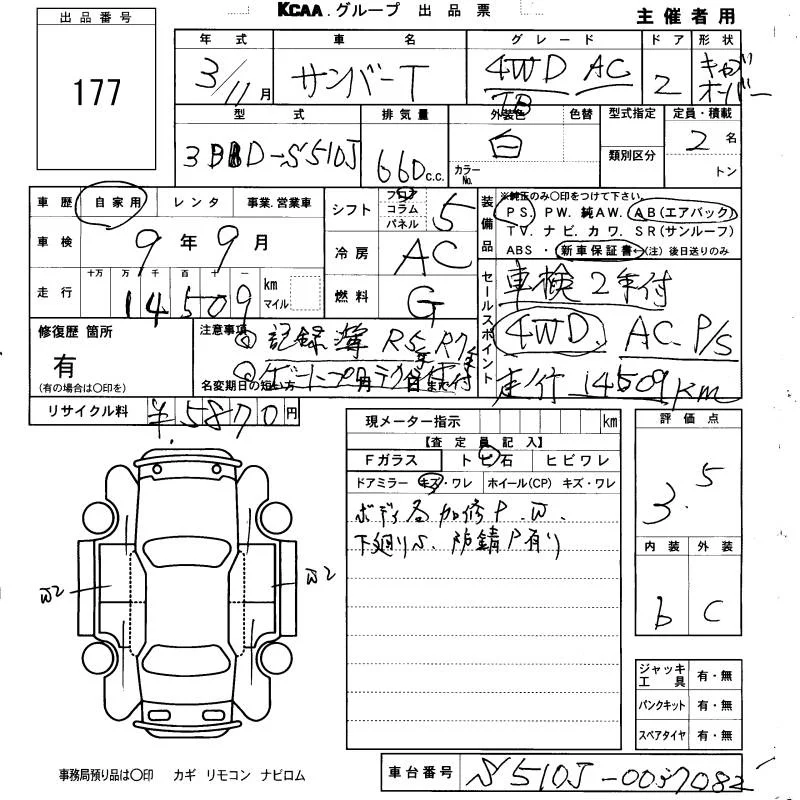 KCAA.グループ 出品票
主催者用
出品番号
177
年式 車名 グレード ドア 形状
3/11月 サンバーT 4WD AC TB 2 キャブオーバー
型式 排気量 外装色 色替 型式指定 定員・積載
3BD-S510J 660c.c. 白 カラーNo. 類別区分 2名
トン
車歴 自家用 レンタ 事業.営業車
シフト フロア コラム パネル 5
装備品 ※純正のみ○印をつけて下さい。
PS. PW. 純AW. AB(エアバック)
TV. ナビ. カワ. SR(サンルーフ)
ABS・新車保証書←(注)後日送りのみ
車検 9年9月
冷房 AC
走行 十万 万 千 百 十 一
14509 km マイル
燃料 G
セールスポイント
車検2年付
4WD. AC. P/S
走行14509km
修復歴 箇所
有
(有の場合は○印を)
注意事項
◎記録簿 R5. R7
名変期日の短い方 月 日まで
リサイクル料 ¥5870円
現メーター指示 km
【査定員記入】
Fガラス トビ石 ヒビワレ
ドアミラー キズ・ワレ ホイール(CP) キズ・ワレ
ボディ各加修P.W.
下廻りS. 防錆P有り
評価点
3.5
内装 外装
b C
W2
W2
ジャッキ工具 有・無
パンクキット 有・無
スペアタイヤ 有・無
事務局預り品は○印 カギ リモコン ナビロム
車台番号 S510J-0037082